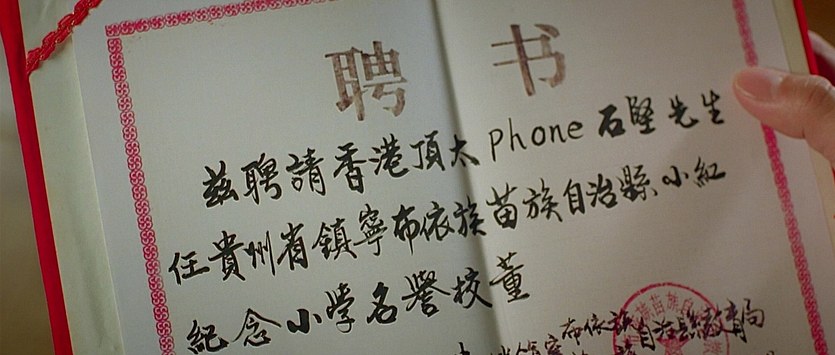 聘书
兹聘請香港頂太phone石堅先生
任貴州省鎮寧布依族苗族自治縣小紅
紀念小學名譽校董
鎮寧布依族苗族自治縣教育局